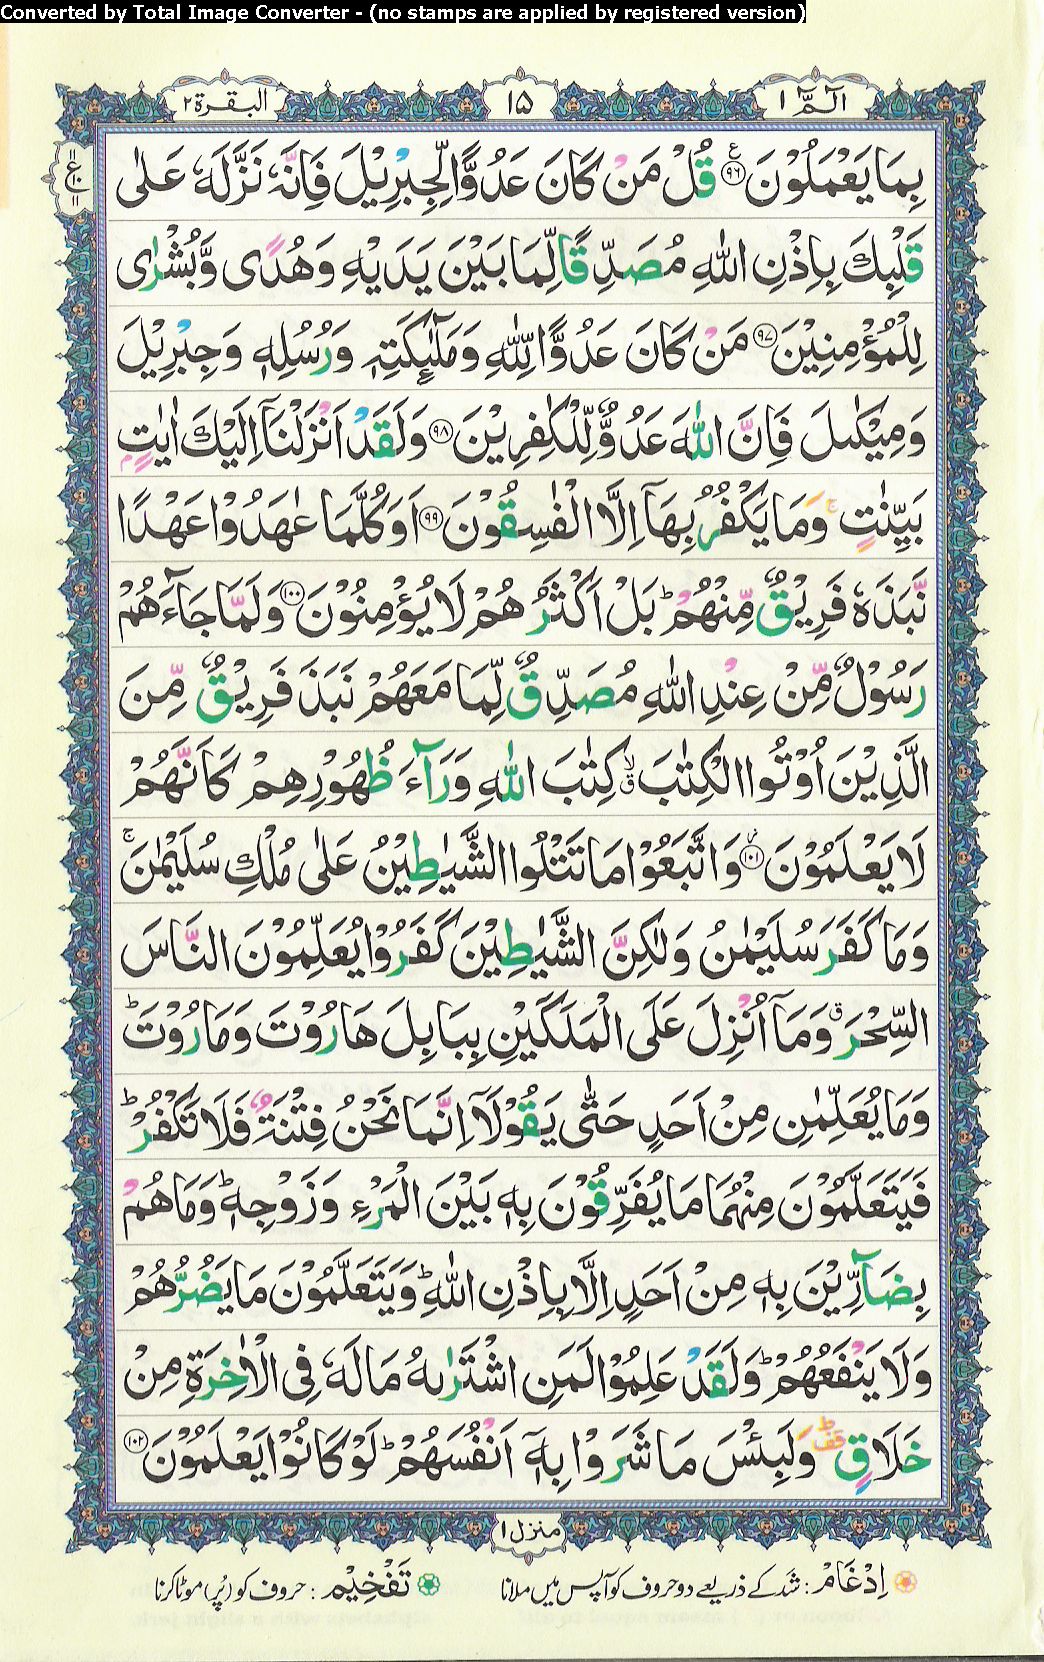 Converted by Total Image Converter - (no stamps are applied by registered version)
الٓمّٓ ١
١٥
البقرة ٢
ع ١١ ١٠ ١١
بِمَا يَعْمَلُوْنَ ﴿٩٦﴾ ع قُلْ مَنْ كَانَ عَدُوًّا لِّجِبْرِيْلَ فَاِنَّهٗ نَزَّلَهٗ عَلٰى
قَلْبِكَ بِاِذْنِ اللّٰهِ مُصَدِّقًا لِّمَا بَيْنَ يَدَيْهِ وَهُدًى وَّبُشْرٰى
لِلْمُؤْمِنِيْنَ ﴿٩٧﴾ مَنْ كَانَ عَدُوًّا لِّلّٰهِ وَمَلٰٓئِكَتِهٖ وَرُسُلِهٖ وَجِبْرِيْلَ
وَمِيْكٰىلَ فَاِنَّ اللّٰهَ عَدُوٌّ لِّلْكٰفِرِيْنَ ﴿٩٨﴾ وَلَقَدْ اَنْزَلْنَآ اِلَيْكَ اٰيٰتٍۭ
بَيِّنٰتٍ ۚ وَمَا يَكْفُرُ بِهَآ اِلَّا الْفٰسِقُوْنَ ﴿٩٩﴾ اَوَكُلَّمَا عٰهَدُوْا عَهْدًا
نَّبَذَهٗ فَرِيْقٌ مِّنْهُمْ ؕ بَلْ اَكْثَرُهُمْ لَا يُؤْمِنُوْنَ ﴿١٠٠﴾ وَلَمَّا جَآءَهُمْ
رَسُوْلٌ مِّنْ عِنْدِ اللّٰهِ مُصَدِّقٌ لِّمَا مَعَهُمْ نَبَذَ فَرِيْقٌ مِّنَ
الَّذِيْنَ اُوْتُوا الْكِتٰبَ ۙق كِتٰبَ اللّٰهِ وَرَآءَ ظُهُوْرِهِمْ كَاَنَّهُمْ
لَا يَعْلَمُوْنَ ﴿١٠١﴾ ز وَاتَّبَعُوْا مَا تَتْلُوا الشَّيٰطِيْنُ عَلٰى مُلْكِ سُلَيْمٰنَ ۚ
وَمَا كَفَرَ سُلَيْمٰنُ وَلٰكِنَّ الشَّيٰطِيْنَ كَفَرُوْا يُعَلِّمُوْنَ النَّاسَ
السِّحْرَ ق وَمَآ اُنْزِلَ عَلَى الْمَلَكَيْنِ بِبَابِلَ هَارُوْتَ وَمَارُوْتَ ؕ
وَمَا يُعَلِّمٰنِ مِنْ اَحَدٍ حَتّٰى يَقُوْلَآ اِنَّمَا نَحْنُ فِتْنَةٌ فَلَا تَكْفُرْ ؕ
فَيَتَعَلَّمُوْنَ مِنْهُمَا مَا يُفَرِّقُوْنَ بِهٖ بَيْنَ الْمَرْءِ وَزَوْجِهٖ ؕ وَمَا هُمْ
بِضَآرِّيْنَ بِهٖ مِنْ اَحَدٍ اِلَّا بِاِذْنِ اللّٰهِ ؕ وَيَتَعَلَّمُوْنَ مَا يَضُرُّهُمْ
وَلَا يَنْفَعُهُمْ ؕ وَلَقَدْ عَلِمُوْا لَمَنِ اشْتَرٰىهُ مَا لَهٗ فِى الْاٰخِرَةِ مِنْ
خَلَاقٍ ؕقف وَلَبِئْسَ مَا شَرَوْا بِهٖٓ اَنْفُسَهُمْ ؕ لَوْ كَانُوْا يَعْلَمُوْنَ ﴿١٠٢﴾
منزل ١
اِدْغَامْ : شد کے ذریعے دو حروف کو آپس میں ملانا تَفْخِیْم : حروف کو (پُر) موٹا کرنا